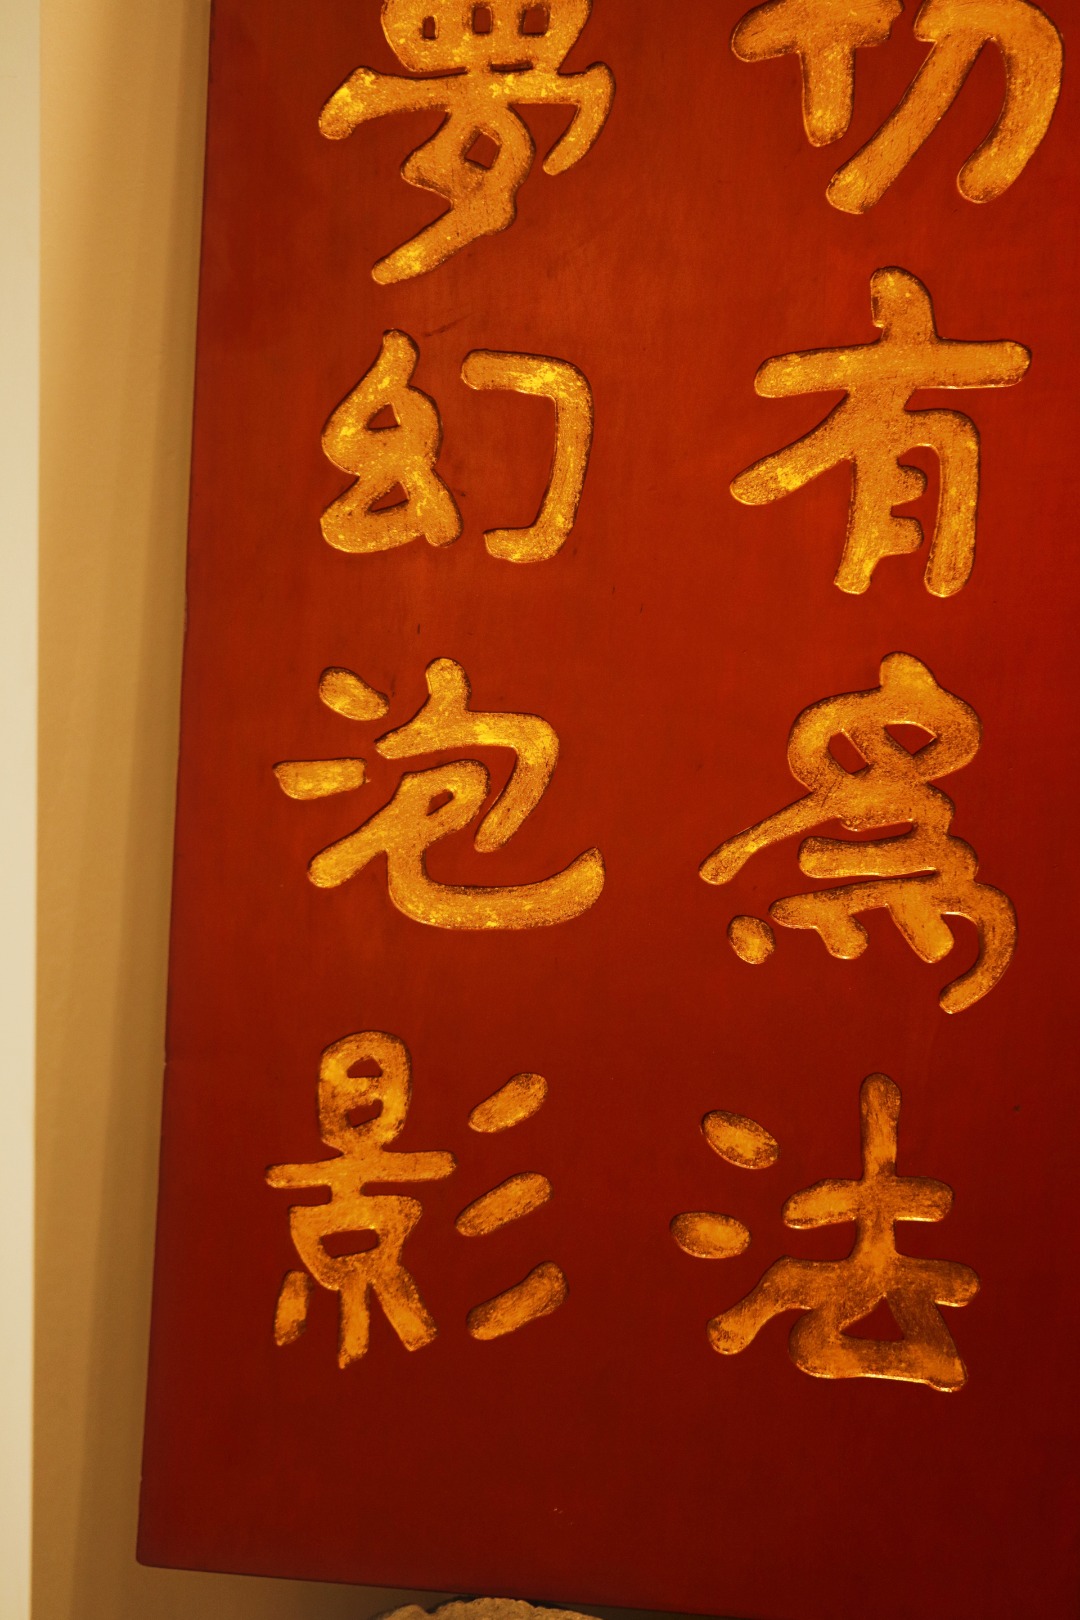 切有為法
夢幻泡影